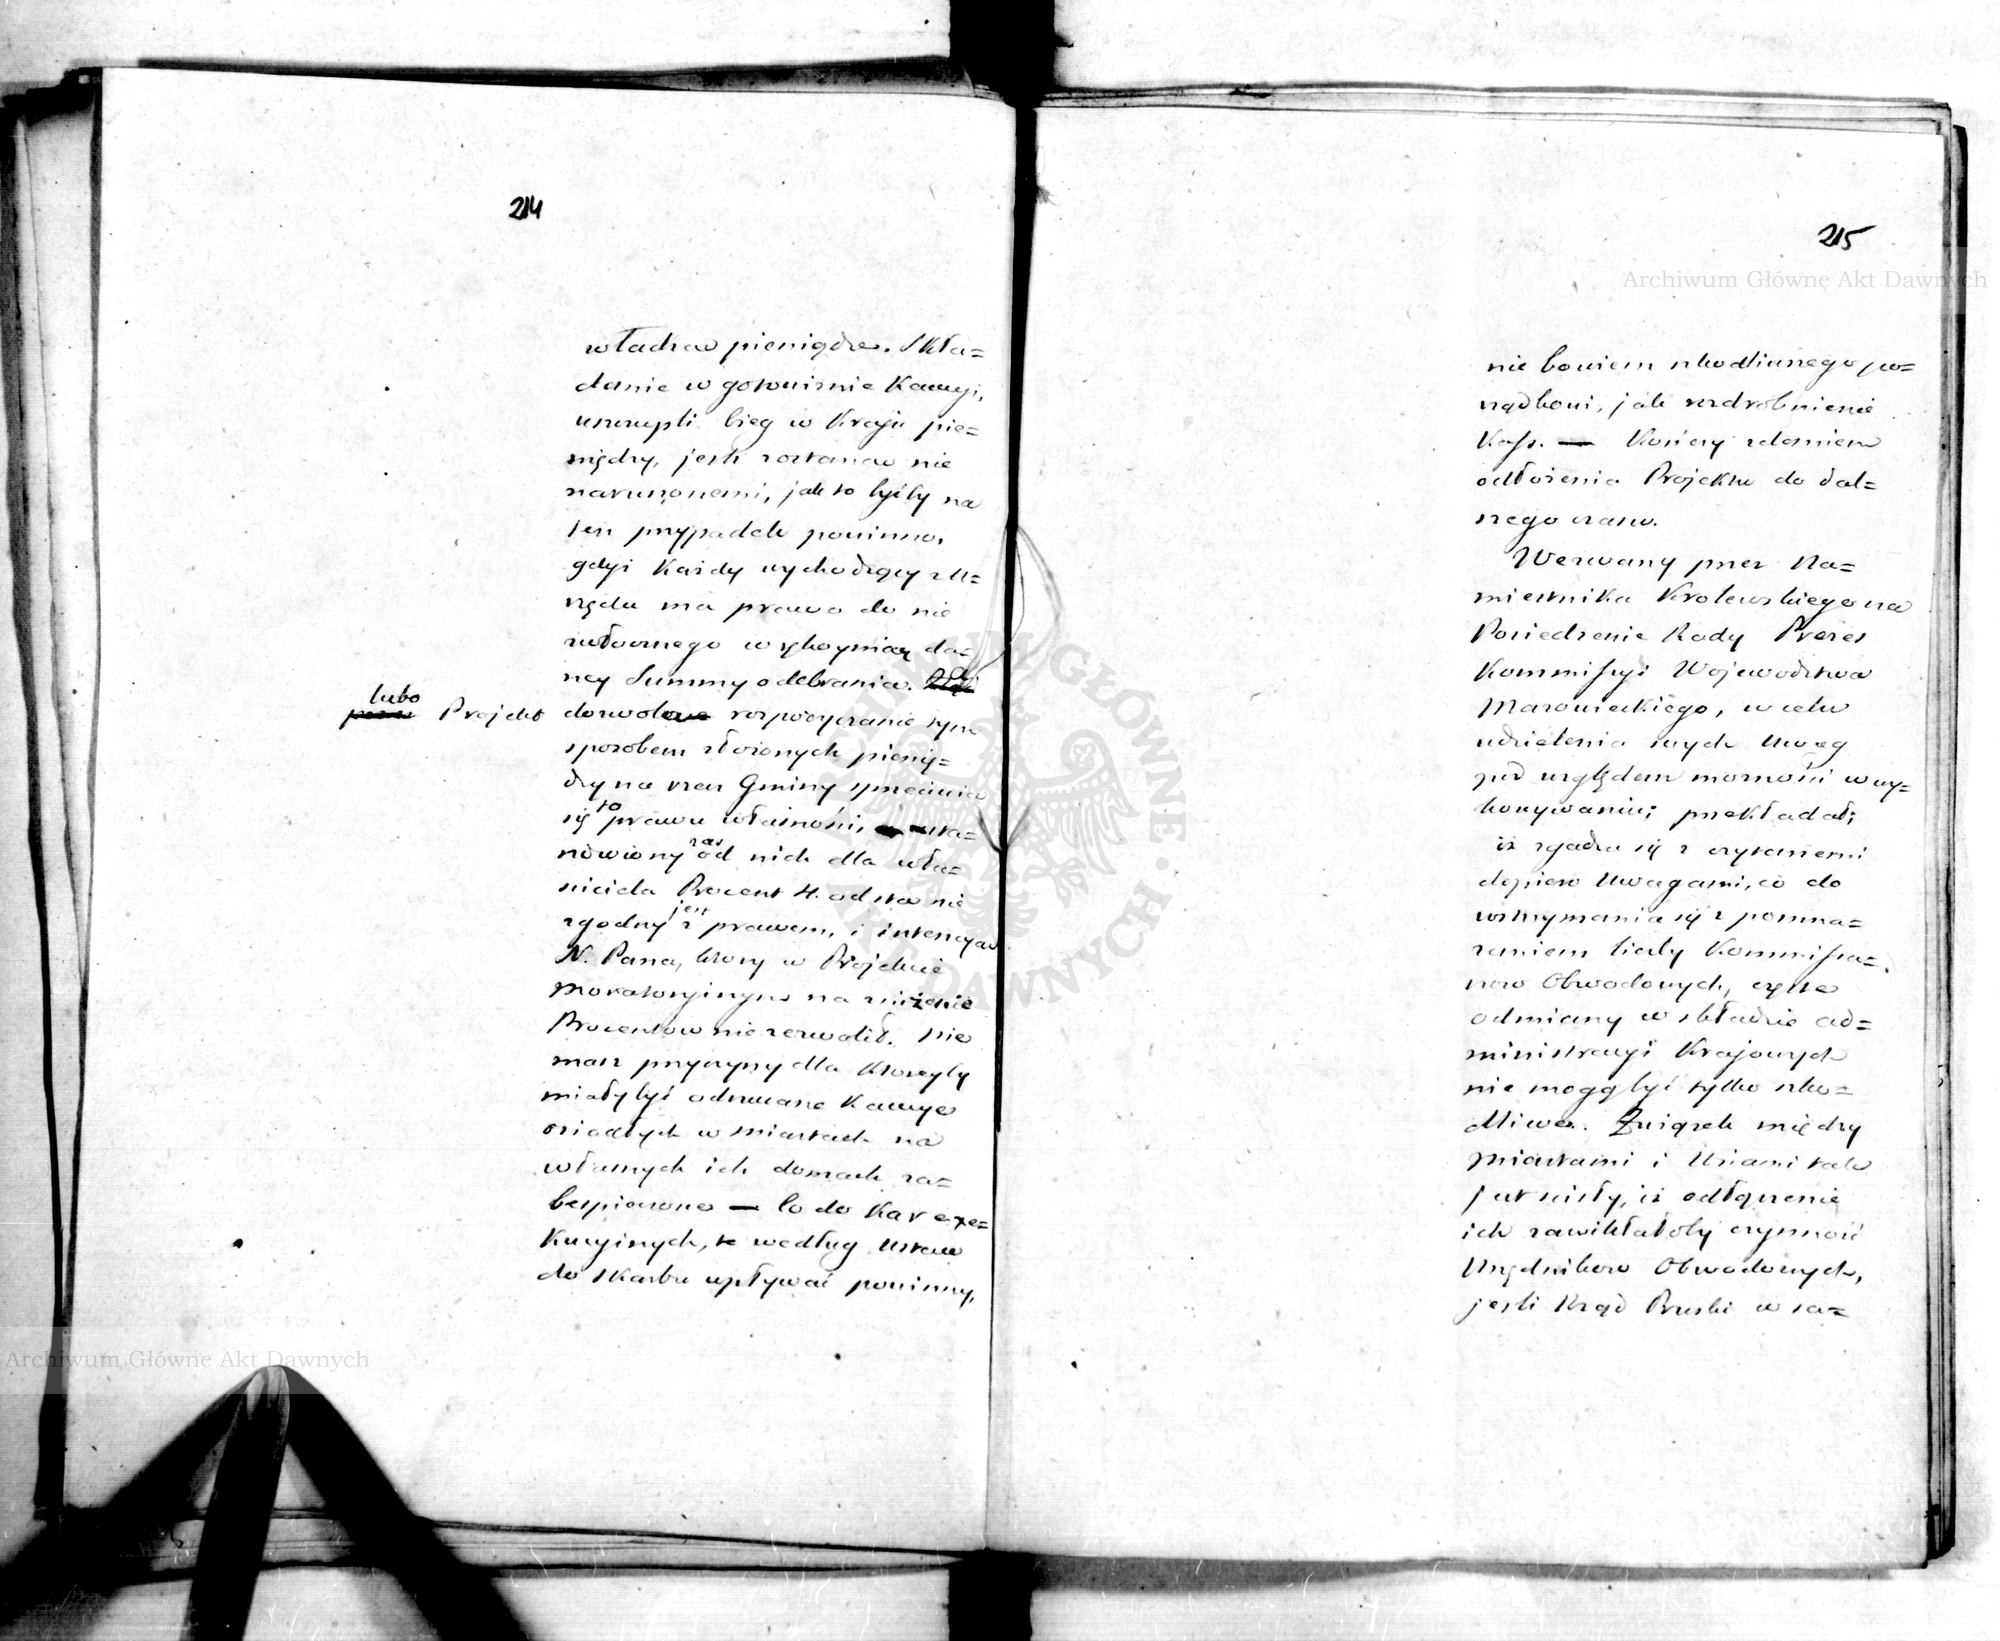 214
władza pieniędze. Skła=
danie w gotowiznie Kaucyi,
uszczupli bieg w Kraju pie=
niędzy, jeśli zostaną nie
naruszonemi, jak to byćby na
ten przypadek powinno,
gdyż Każdy wychodzący z U=
rzędu ma prawo do nie
zwłocznego w ybrzmiący da=
ney Summy odebrania.
lubo
Projekt dozwola rozpożyczanie tym
sposobem złożonych pienię=
dzy na rzecz Gminy sprzeciwia
się to prawu własności, usta=
nowiony zaś od nich dla wła=
ściciela Procent 4. od sta nie
zgodny jest z prawem, i intencyą
N. Pana, ktory w Projekcie
moratoryinym na zniżenie
Procentow nie zezwolił. Nie
masz przyczyny dla ktoreyby
miały być odrzucane Kaucye
osiadłych w miastach na
własnych ich domach za=
bespieczone — Co do Kar exe=
Kucyinych, te według Ustaw
do Skarbu wpływać powinny,
215
nic bowiem szkodliwszego po=
rządkowi, jak rozdrobnienie
Kass. — Kończy zdaniem
odłożenia Projektu do dal=
szego czasu.
Wezwany przez Na=
miestnika Krolewskiego na
Posiedzenie Rady Prezes
Kommissyi Wojewodztwa
Mazowieckiego, w celu
udzielenia swych Uwag
pod względem możności w wy=
konywaniu; przekładał;
iż zgadza się z czytanemi
dopiero Uwagami, co do
wstrzymania się z pomna=
żaniem liczby Kommissa=
rzow Obwodowych, częste
odmiany w składzie ad=
ministracyi Krajowych
nie mogą być tylko szko=
dliwe. Związek między
miastami i Wsiami tak
jest ścisły, iż odłączenie
ich zawikłałoby czynność
Urzędnikow Obwodowych,
jeśli Rząd Pruski w za=
Archiwum Główne Akt Dawnych
Archiwum Główne Akt Dawnych
ARCHIWUM GŁÓWNE AKT DAWNYCH